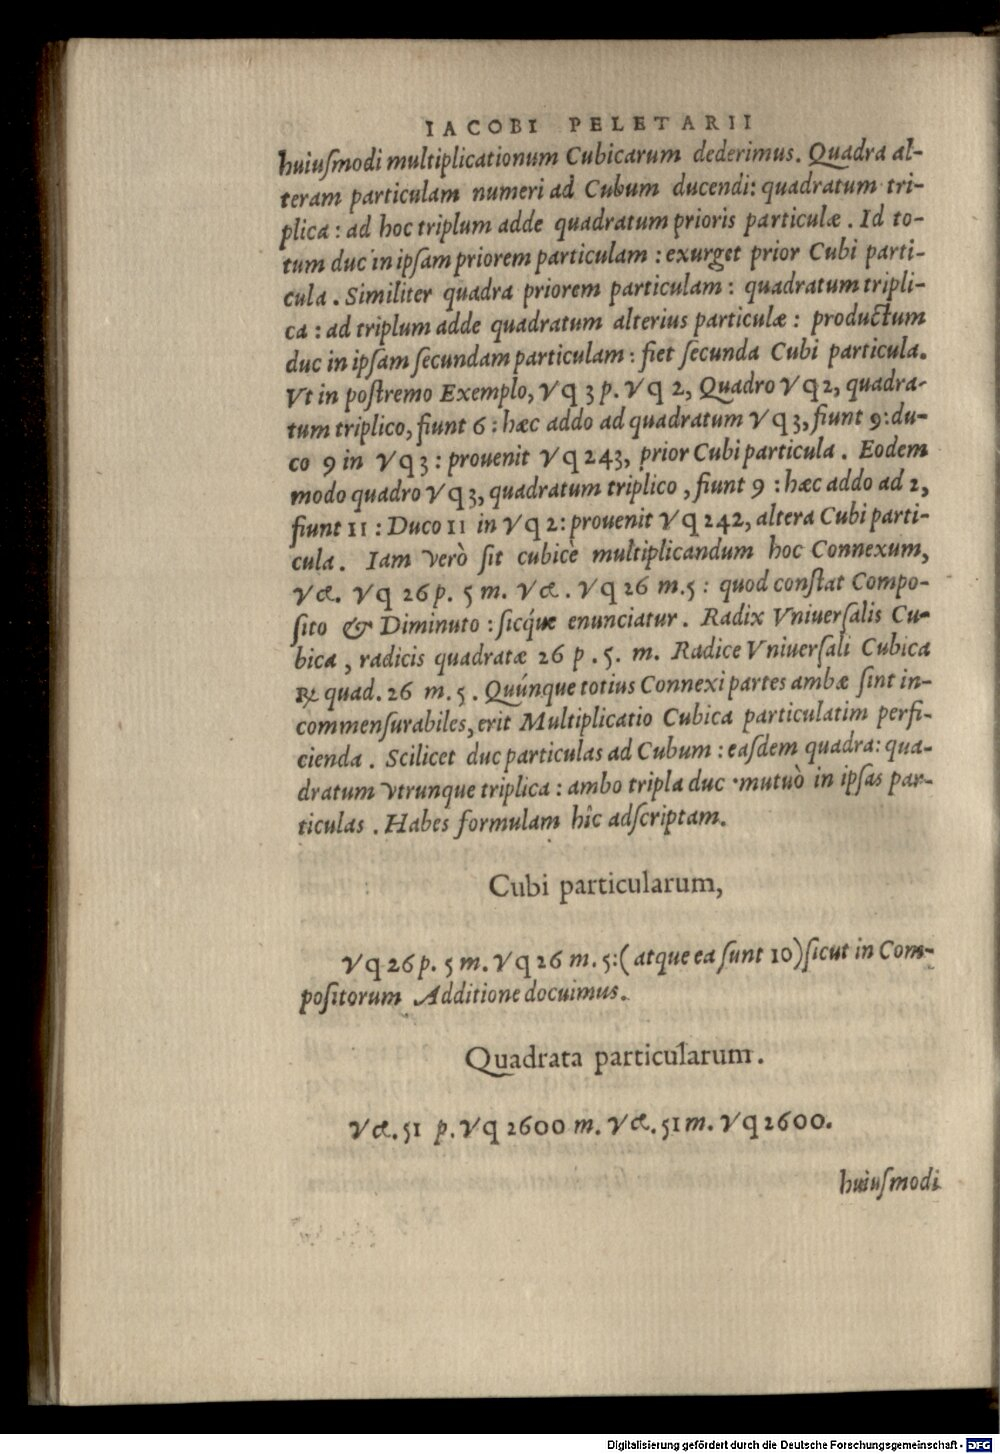 IACOBI PELETARII
huiuſmodi multiplicationum Cubicarum dederimus. Quadra al-
teram particulam numeri ad Cubum ducendi: quadratum tri-
plica: ad hoc triplum adde quadratum prioris particulæ. Id to-
tum duc in ipſam priorem particulam: exurget prior Cubi parti-
cula. Similiter quadra priorem particulam: quadratum tripli-
ca: ad triplum adde quadratum alterius particulæ: productum
duc in ipſam ſecundam particulam: fiet ſecunda Cubi particula.
Vt in poſtremo Exemplo, √q 3 p. √q 2, Quadro √q 2, quadra-
tum triplico, fiunt 6: hæc addo ad quadratum √q 3, fiunt 9: du-
co 9 in √q 3: prouenit √q 243, prior Cubi particula. Eodem
modo quadro √q 3, quadratum triplico, fiunt 9: hæc addo ad 2,
fiunt 11: Duco 11 in √q 2: prouenit √q 242, altera Cubi parti-
cula. Iam verò ſit cubicè multiplicandum hoc Connexum,
√ ꝯ. √q 26 p. 5 m. √ ꝯ. √q 26 m. 5: quod conſtat Compo-
ſito & Diminuto: ſicq́ue enunciatur. Radix Vniuerſalis Cu-
bica, radicis quadratæ 26 p. 5. m. Radice Vniuerſali Cubica
℞ quad. 26 m. 5. Quúnque totius Connexi partes ambæ ſint in-
commenſurabiles, erit Multiplicatio Cubica particulatim perfi-
cienda. Scilicet duc particulas ad Cubum: eaſdem quadra: qua-
dratum vtrunque triplica: ambo tripla duc mutuò in ipſas par-
ticulas. Habes formulam hîc adſcriptam.
Cubi particularum,
√q 26 p. 5 m. √q 26 m. 5: (atque ea ſunt 10) ſicut in Com-
poſitorum Additione docuimus.
Quadrata particularum.
√ ꝯ. 51 p. √q 2600 m. √ ꝯ. 51 m. √q 2600.
huiuſmodi
Digitalisierung gefördert durch die Deutsche Forschungsgemeinschaft - DFG